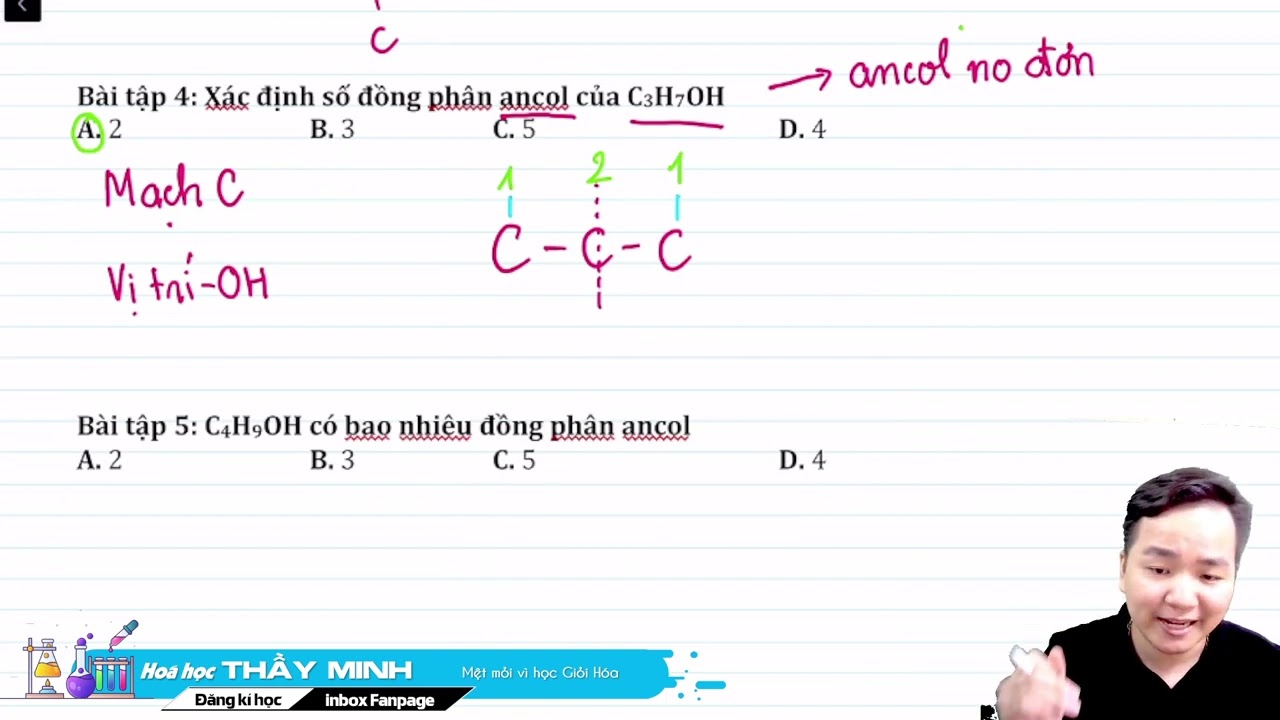 C
Bài tập 4: Xác định số đồng phân ancol của C₃H₇OH → ancol no đơn
A. 2 B. 3 C. 5 D. 4
Mạch C
1 2 1
C - C - C
Vị trí -OH
Bài tập 5: C₄H₉OH có bao nhiêu đồng phân ancol
A. 2 B. 3 C. 5 D. 4
Hoá học THẦY MINH Mệt mỏi vì học Giỏi Hóa
Đăng kí học inbox Fanpage